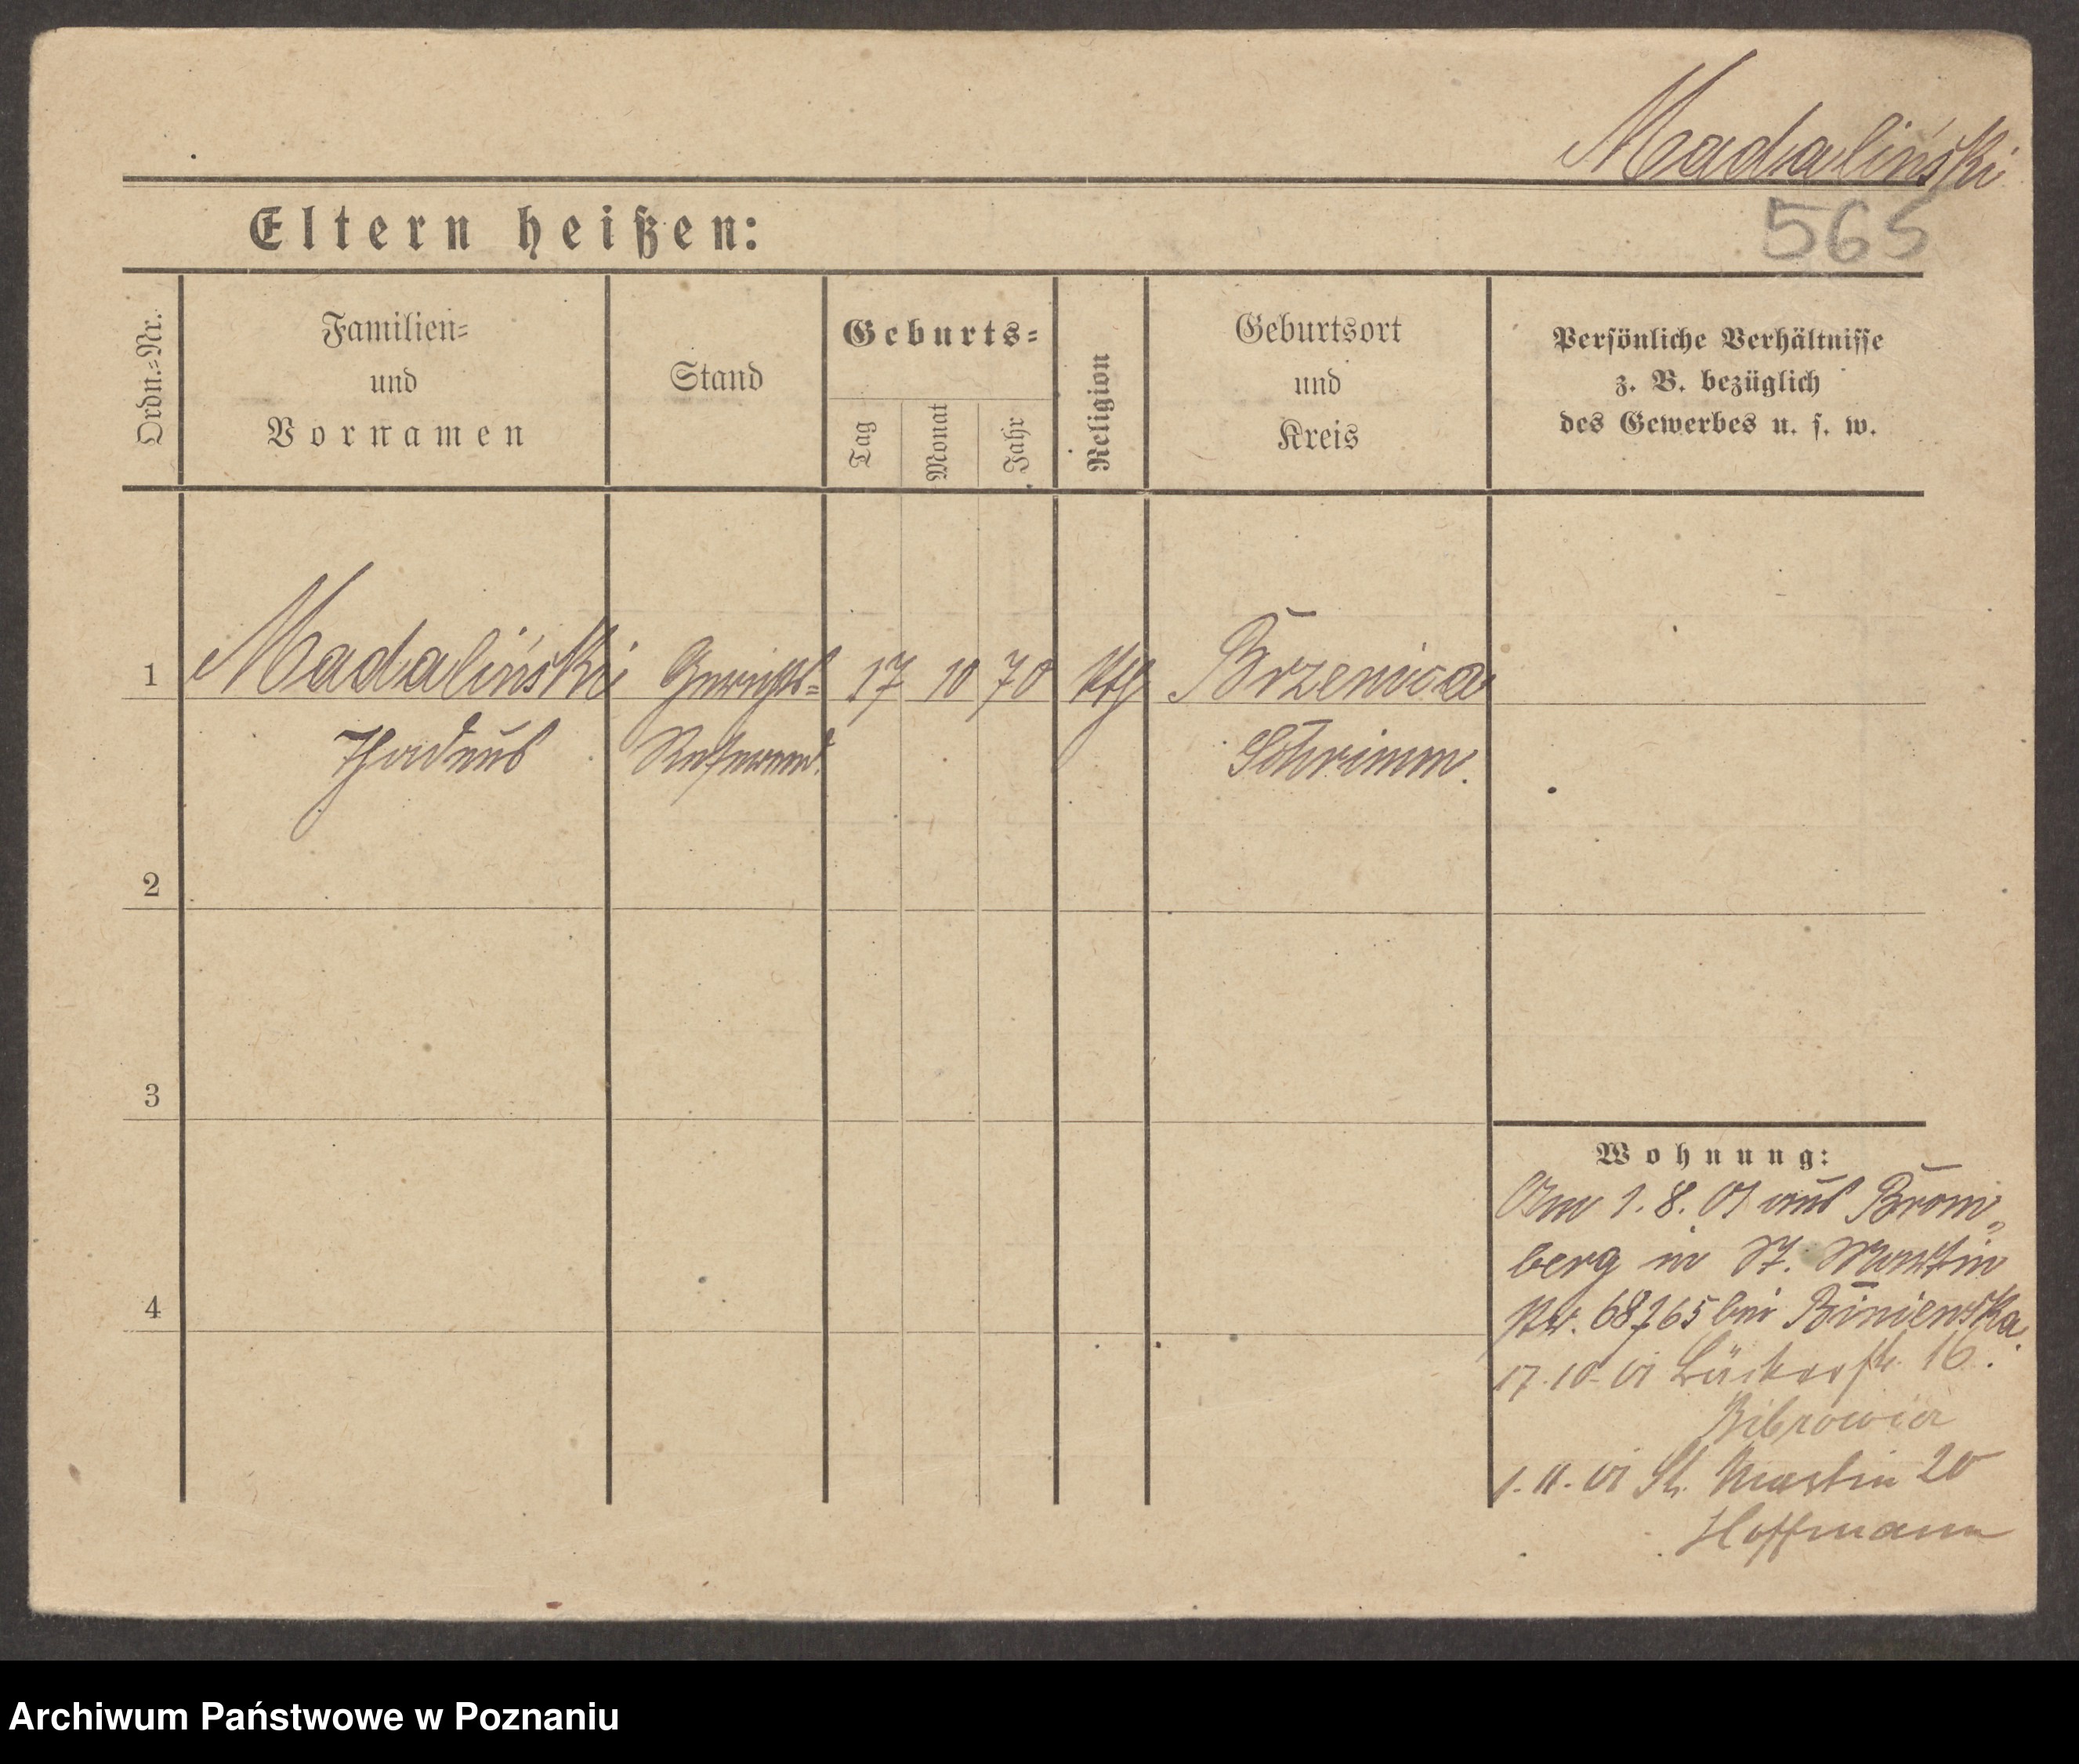 Madaliński
565
Eltern heißen:
Ordn.=Nr.
Familien=
und
Vornamen
Stand
Geburts=
Tag
Monat
Jahr
Religion
Geburtsort
und
Kreis
Persönliche Verhältnisse
z. B. bezüglich
des Gewerbes u. s. w.
1 Madaliński Gerichts= 17 10 70 kth Brzenica
Thadeus Referend. Schrimm.
2
3
4
Wohnung:
Am 1. 8. 01 aus Brom„
berg in St. Martin
Nr. 68/65 bei Biniewska.
17. 10. 01 16.
Bibrowicz
1. 11. 01 St. Martin 20
Hoffmann
Archiwum Państwowe w Poznaniu